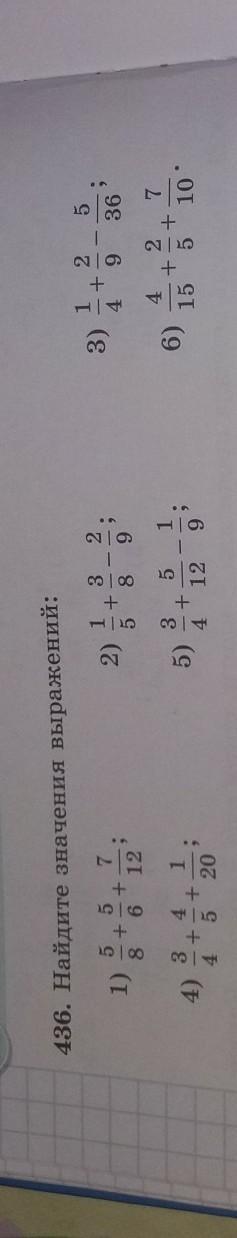 436. Найдите значения выражений:
1) 5/8 + 5/6 + 7/12; 2) 1/5 + 3/8 − 2/9; 3) 1/4 + 2/9 − 5/36;
4) 3/4 + 4/5 + 1/20; 5) 3/4 + 5/12 − 1/9; 6) 4/15 + 2/5 + 7/10.